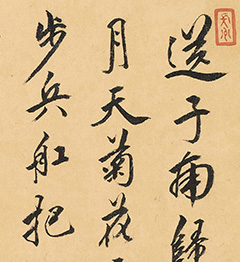 送子歸
月天菊花
步兵舡把